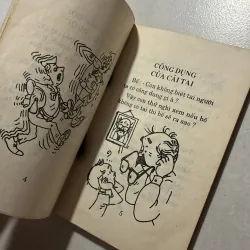 CÔNG DỤNG
CỦA CÁI TAI
BÉ: - Con không biết tai người
ta có công dụng gì à ?
- Vậy con thử nghĩ xem nếu bố
không có tai thì bố sẽ ra sao ?
4
5